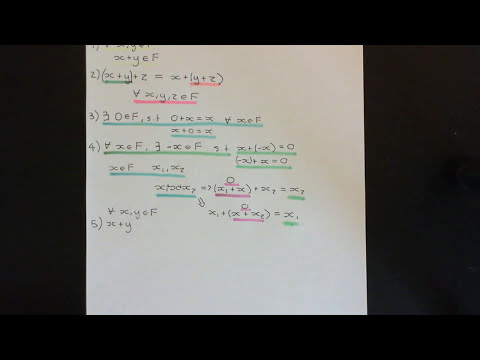 1) ∀ x,y∈F
x+y∈F
2) (x+y)+z = x+(y+z)
∀ x,y,z∈F
3) ∃ 0∈F, s.t 0+x=x ∀ x∈F
x+0=x
4) ∀ x∈F, ∃ -x∈F s.t x+(-x)=0
(-x)+x=0
x∈F x₁,x₂
⇒ (x₁+x)+x₂ = x₂
0
⇓ x₁+(x+x₂) = x₁
0
∀ x,y∈F
5) x+y